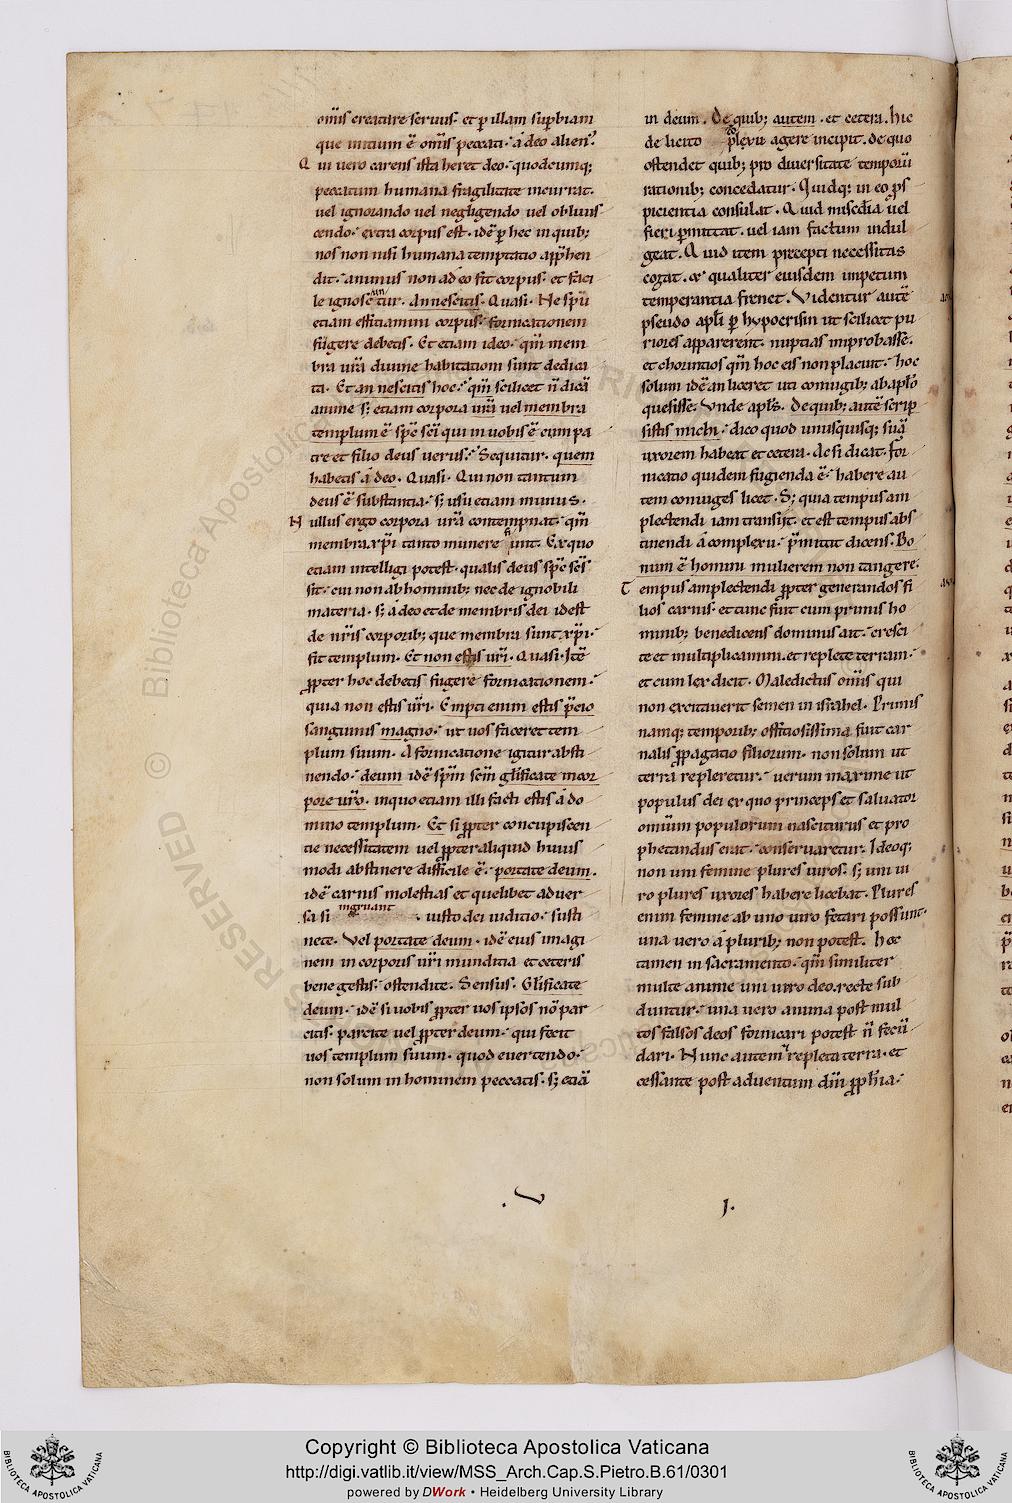 om̅is creature seruus. et ꝑ illam suꝑbiam
que initium ē om̅is peccati. a deo alien᷒.
Q ui uero carens ista heret deo. quodcumq;
peccatum humana fragilitate incurrat.
uel ignorando uel negligendo uel obliuis
cendo. extra corpus est. idē ꝑ hec in quib;
nos non nisi humana temptatio app̅hen
dit. animus non adeo fit corpus. et faci
le ignoscūtur. An nescitis. Quasi. Ne sp̅u
etiam efficiamini corpus. fornicationem
fugere debetis. Et etiam ideo. qm̅ mem
bra ur̅a diuine habitationi sunt dedica
ta. Et an nescitis hoc. qm̅ scilicet n̅ dicā
anime s; etiam corpora ur̅a uel membra
templum ē sp̅c sc̅i qui in uobis ē cum pa
tre et filio deus uerus. Sequitur. quem
habetis a deo. Quasi. Qui non tantum
deus ē substantia. s; usu etiam munus.
N ullus ergo corpora ur̅a contempnat. qm̅
membra xp̅i tanto munere unt. Ex quo
etiam intelligi potest. qualis deus sp̅c sc̅s
sit. cui non ab hominib; nec de ignobili
materia. s; a deo et de membris dei idest
de nr̅is corporib; que membra sunt xp̅i.
fit templum. Et non estis ur̅i. Quasi. Itē
ꝓpter hoc debetis fugere fornicationem.
quia non estis ur̅i. Empti enim estis p̅cio
sanguinis magno. ut uos faceret tem
plum suum. A fornicatione igitur absti
nendo. deum idē sp̅m sc̅m glificate in cor
pore ur̅o. in quo etiam illi facti estis a do
mino templum. Et si ꝓpter concupiscen
tie necessitatem uel ꝓpter aliquid huius
modi abstinere difficile ē. portate deum.
idē carnis molestias et quelibet aduer
sa si ingruant. iusto dei iuditio. susti
nete. Vel portate deum. idē eius imagi
nem in corporis ur̅i munditia et ceteris
bene gestis. ostendite. Sensus. Glificate
deum. idē si uobis ꝓpter uos ipsos no̅ par
citis. parcite uel ꝓpter deum. qui fecit
uos templum suum. quod euertendo.
non solum in hominem peccatis. s; etiā
in deum. De quib; autem. et cetera. hic
de licito cōplexu agere incipit. de quo
ostendet quib; pro diuersitate temporū
rationib; concedatur. Quidq; in eo ꝑs
picientia consulat. Quid misc̅dia uel
fieri ꝑmittat. uel iam factum indul
geat. Quid item precepti necessitas
cogat. & qualiter eiusdem impetum
temperantia frenet. Videntur autē
pseudo apl̅i ꝑ hypocrisin ut scilicet pu
riores apparerent. nuptias improbasse.
et chorintios qm̅ hoc eis non placuit. hoc
solum idē an liceret uti coniugib; ab apl̅o
quesisse. Vnde apl̅s. de quib; autē scrip
sistis michi. dico quod unusquisq; suā
uxorem habeat et cetera. Ac si dicat. for
nicatio quidem fugienda ē. habere au
tem coniuges licet. S; quia tempus am
plectendi iam transiit. et est tempus abs
tinendi a complexu. p̅mittit dicens. Bo
num ē homini mulierem non tangere.
T empus amplectendi ꝓpter generandos fi
lios carnis. et tunc fuit cum primis ho
minib; benedicens dominus ait. cresci
te et multiplicamini. et replete terram.
et cum lex dicit. Maledictus om̅is qui
non excitauerit semen in israhel. Primis
namq; temporib; offitiosissima fuit car
nalis ꝓpagatio filiorum. non solum ut
terra repleretur. uerum maxime ut
populus dei ex quo princeps et saluator
omium populorum nasciturus et pro
phetandus erat. conseruaretur. Ideoq;
non uni femine plures uiros. s; uni ui
ro plures uxores habere licebat. Plures
enim femine ab uno uiro fetari possunt.
una uero a plurib; non potest. hoc
tamen in sacramento. qm̅ similiter
multe anime uni uiro deo recte sub
duntur. una uero anima post mul
tos falsos deos fornicari potest n̅ fecū
dari. Nunc autem repleta terra. et
cessante post aduentum dn̅i ꝓph̅ia.
Copyright © Biblioteca Apostolica Vaticana
http://digi.vatlib.it/view/MSS_Arch.Cap.S.Pietro.B.61/0301
powered by DWork • Heidelberg University Library